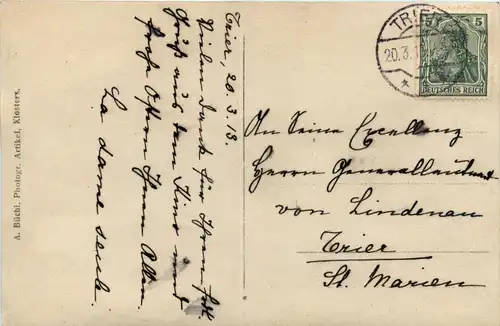 Trier, 20. 3. 13.
Vielen Dank für Ihren frdl.
Gruß aus dem Kino und
frohe Ostern Ihnen Allen.
La dame seule.
A. Büchi. Photogr. Artikel, Klosters.
TRIER
20.3.1
5
DEUTSCHES REICH
An Seine Excellenz
Herrn Generalleutnant
von Lindenau
Trier
St. Marien